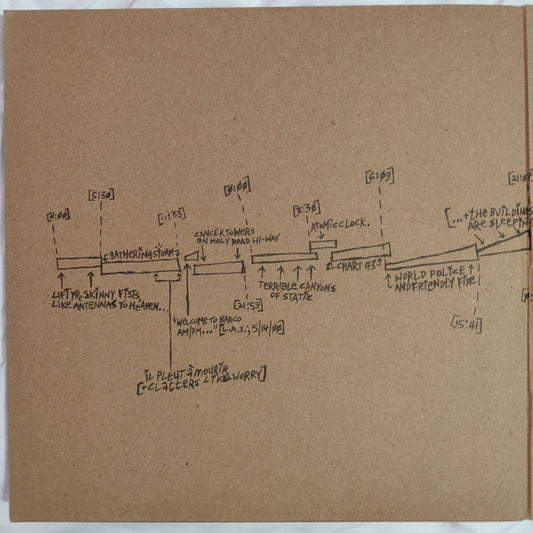 [0:00]
[5:30]
[11:35]
[0:00]
[3:30]
[6:09]
[21:0
GATHERING STORM
CANCER TOWERS
ON HOLY ROAD HI-WAY
ATOMIC CLOCK.
[...+THE BUILDINGS
ARE SLEEPIN
LIFT YR. SKINNY FISTS
LIKE ANTENNAS TO HEAVEN...
"WELCOME TO BARCO
AM/PM..." [L.A.X.; 5/14/00]
[21:59]
TERRIBLE CANYONS
OF STATIC
CHART #3
WORLD POLICE
AND FRIENDLY FIRE
[15:41]
IL PLEUT À MOURIR
[+CLATTERS LIKE WORRY]